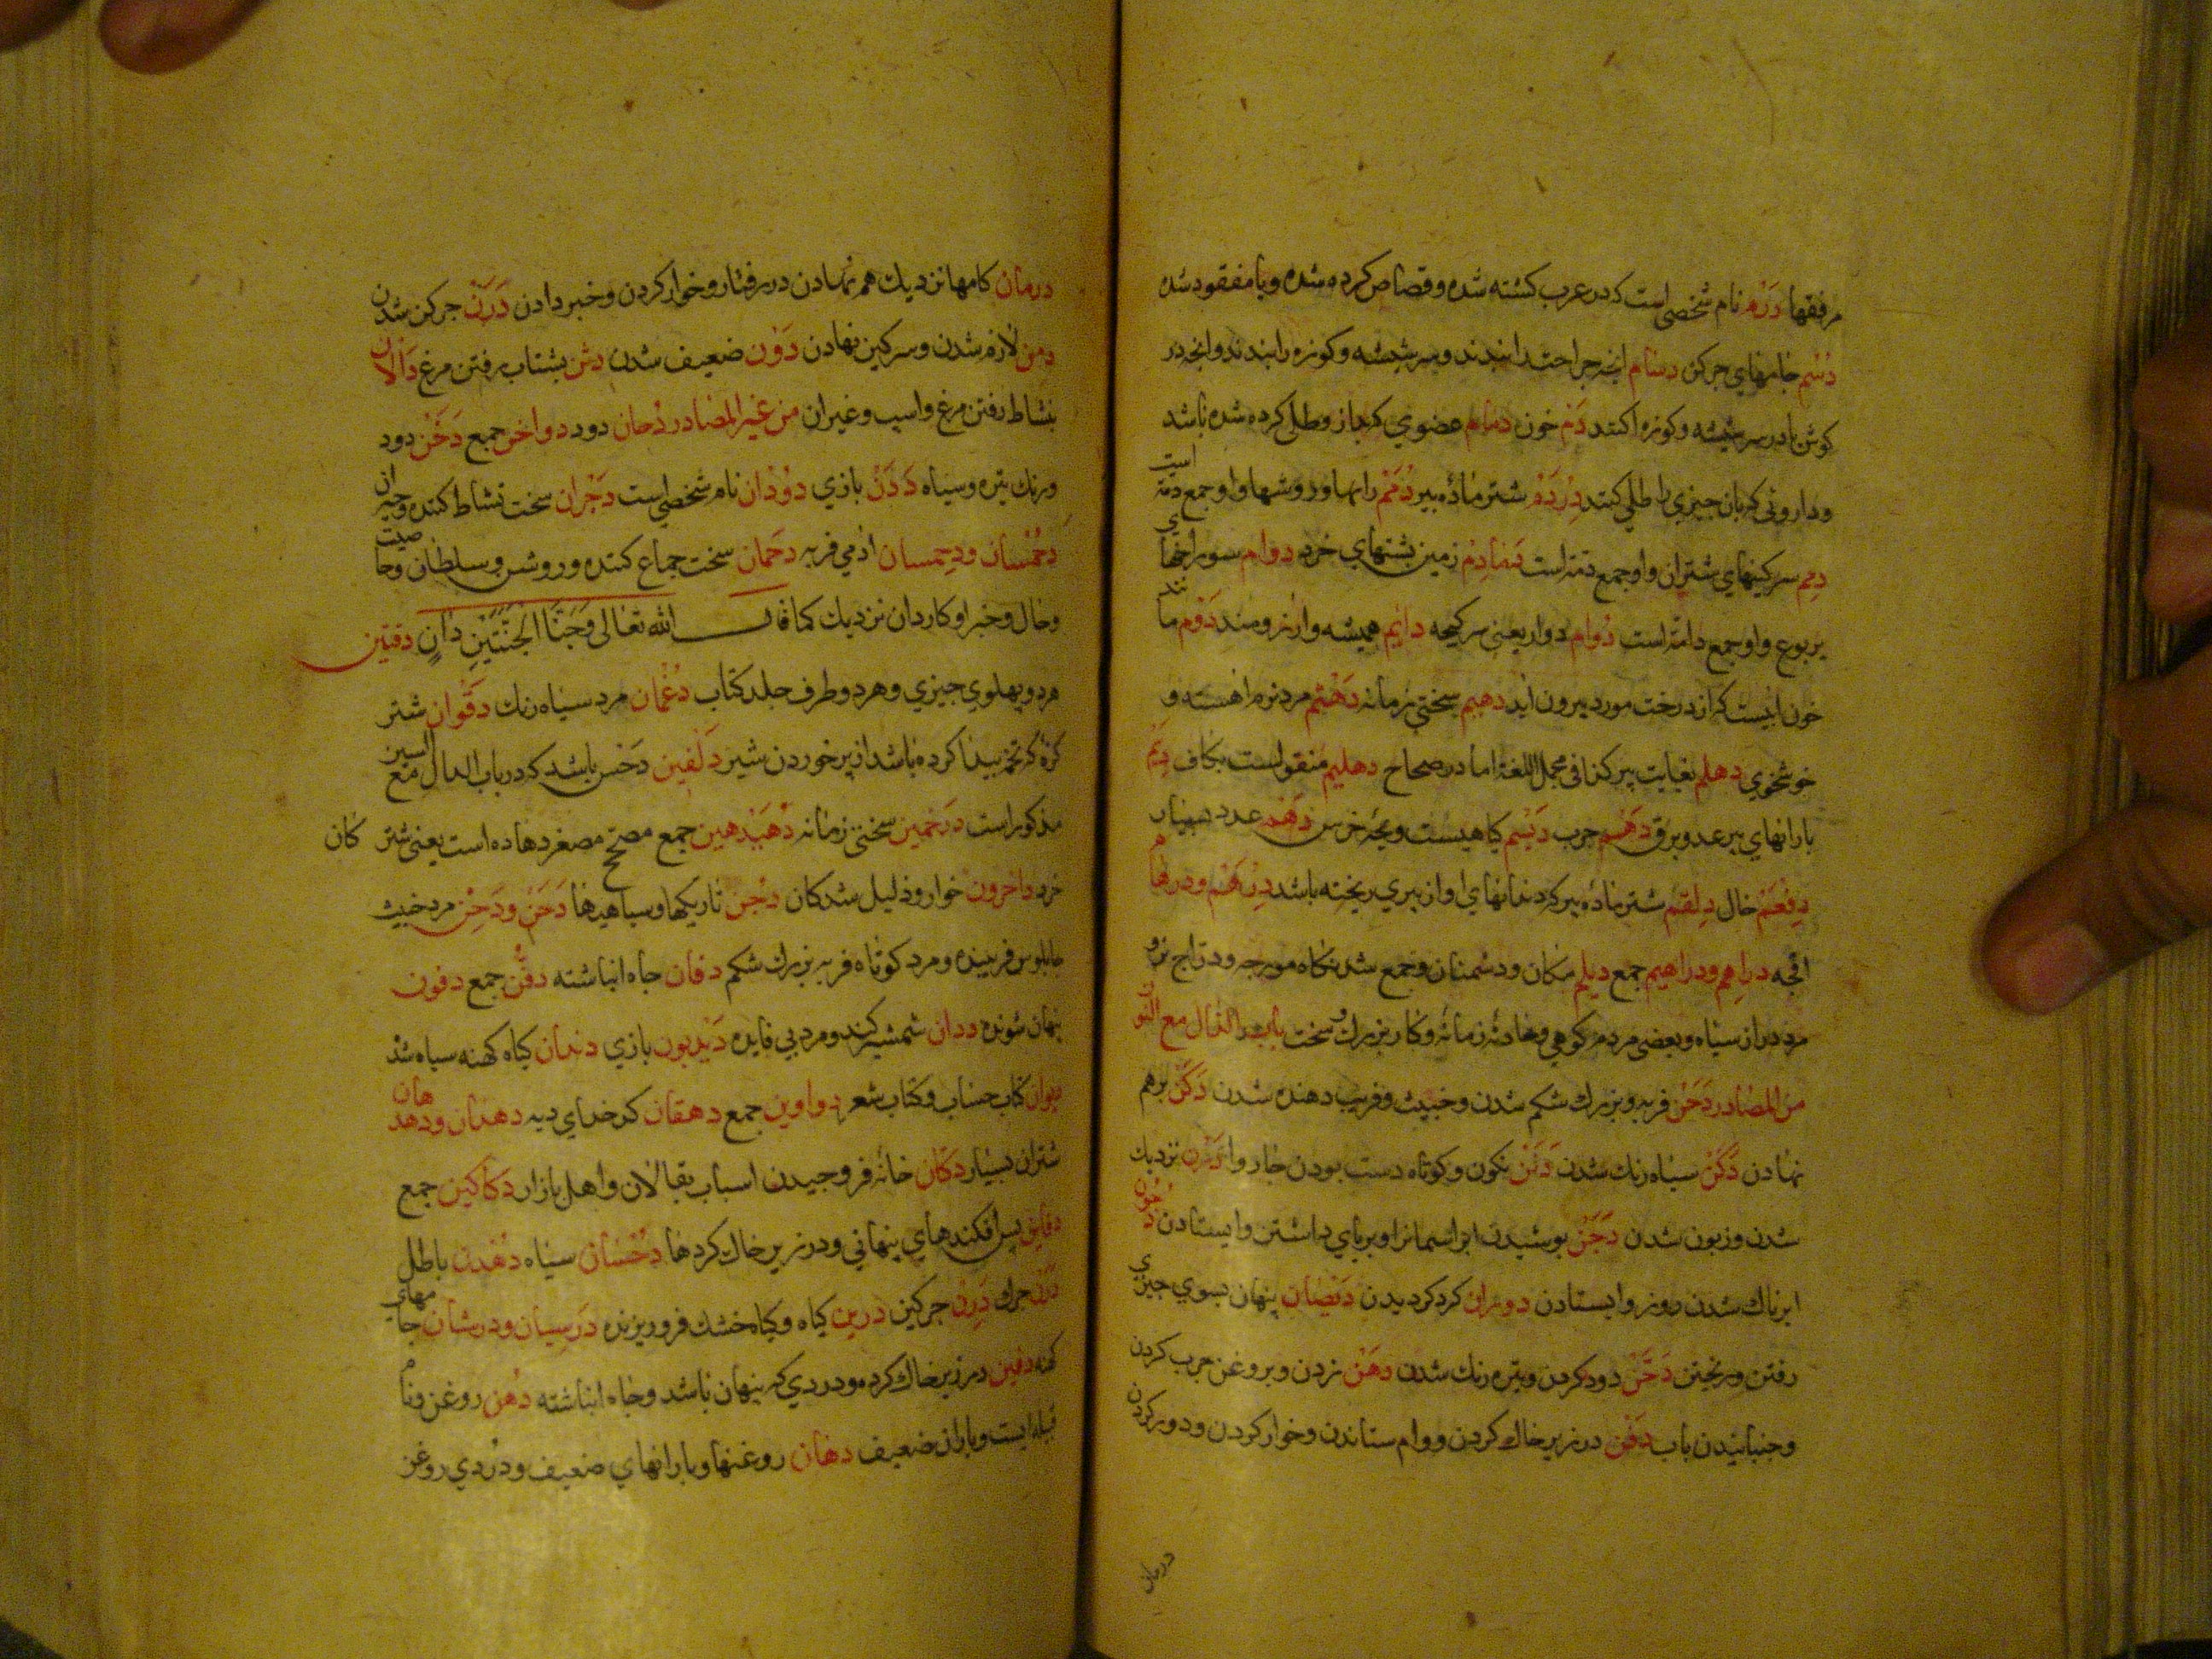 مرفقها دَرْم نام شخصی است که در عرب کشته شده و قصاص کرده شده و یا مفقود شده
دُسْم جامهای جرکن دسام انچه جراحت را بندند و سر شیشه و کوزه را بندند و انچه در
کوش یا در سر شیشه و کوزه کنند دَم خون دمام عضوی که باز و طلی کرده شده باشد
و داروئی که بان چیزی را طلی کنند دِرْدِم شتر مادهٔ پیر راهها و روشها و او جمع دمّة است
دِمَم سرکینهای شتران و او جمع دمنه است دَمادِم زمین پشتهای خرد دوام سوراخهای
یربوع و او جمع دامّه است دُوام دوار یعنی سرکیجه دایم همیشه و ارزومند دَوْم ما نند
خون ایست که از درخت مورد بیرون اید دهیم سختی زمانه دَهْثَم مرد نرم اهسته و
خوشخوی دهلم بغایت پیر کذا فی مجمل اللغة اما در صحاح دهلیم منقولست بکاف دِیَم
بارانهای بی رعد و برق دَهْم جرب دَیْسم کیاهیست و بچهٔ خرس دَهْم عدد بسیار
دِفْعَم خال دِلقم شتر مادهٔ پیر که دندانهای او از پیری ریخته باشد دِرْهَم و درهام
اقچه دراهم و دراهیم جمع دیلم مکان و دشمنان و جمع شدنکاه مورچه و دراج نر و
مرد دراز سیاه و بعضی مردم کوهی و حادثهٔ زمانه و کار بزرک و سخت باب الدال مع النون
من المصادر دَحَن فربه و بزرک شکم شدن و خبیث و فریب دهنده شدن دَکْن برهم
نهادن دَکَن سیاه رنک شدن دَنَن نکون و کوتاه دست بودن چاروا نزدیک
شدن و زبون شدن دَجْن پوشیدن ابر اسمانرا و بر پای داشتن و ایستادن دُجُون
ابرناک شدن روز و ایستادن دوران کرد کردیدن دَیَصان پنهان بسوی چیزی
رفتن و ریختن دَخَن دود کردن و تیره رنک شدن دهَن زدن و بروغن چرب کردن
و جنبانیدن باب دَفْن در زیر خاک کردن و وام ستاندن و خوار کردن و دور کردن
درمان
درمان کامها نزدیک هم نهادن در رفتار و خوار کردن و خبر دادن دَرَن جرکن شدن
دمن لازم شدن و سرکین نهادن دَوْن ضعیف شدن دثن بشتاب رفتن مرغ دَألان
بنشاط رفتن مرغ و اسب و غیر ان من غیر المصادر دُخان دود دواخن جمع دَخَن دود
و رنک تیره و سیاه دَدَن بازی دوْدان نام شخصی است دَجْران سخت نشاط کننده و حیران
دُحْمُسان و دِحمسان ادمی فربه دَحمان سخت جماع کننده و روشن و سلطان و خاصیت
و حال و خبر او کاردان نزدیک کما قال الله تعالی وَجَنَا الجَنَّتَیْنِ دَانٍ دفتین
هر دو پهلوی چیزی و هر دو طرف جلد کتاب دُغْمان مرد سیاه رنک دقوان شتر
کرّه که تخمه پیدا کرده باشد از پر خوردن شیر دَلْفین دَخس باشد که در باب الدال مع السین
مذکور است دَرَخمین سختی زمانه دُهَیْدهین جمع مصحّح مصغر دهاده است یعنی شتر کان
خرد داخرون خوار و ذلیل شدکان دُجْن تاریکها و سیاهیها دَحَن و دَحِن مرد خبیث
چابلوس فریبنده و مرد کوتاه فربه بزرک شکم دفان چاه انباشته دفُن جمع دفون
پنهان شونده ددان شمشیر کند و مرد بی فایده دَیْدبون بازی دندان کیاه کهنه سیاه شده
دیوان کتاب حساب و کتاب شعر دواوین جمع دهقان کدخدای دیه دهدان و دهدهان
شتران بسیار دکّان خانه فروجیدن اسباب بقالان و اهل بازار دکاکین جمع
دفاین پس افکندهای پنهانی و در زیر خاک کردها دُخْسان سیاه دُهْدن باطل
دَرَن جرک دَرِن جرکین درین کیاه و کیاه خشک فرو ریزنده دَرْسان و درسان جامهای
کهنه دفین در زیر خاک کرده و دردی که پنهان باشد و چاه انباشته دُهن روغن و نام
قبیله ایست و باران ضعیف دهان روغنها و بارانهای ضعیف و دُردی روغن